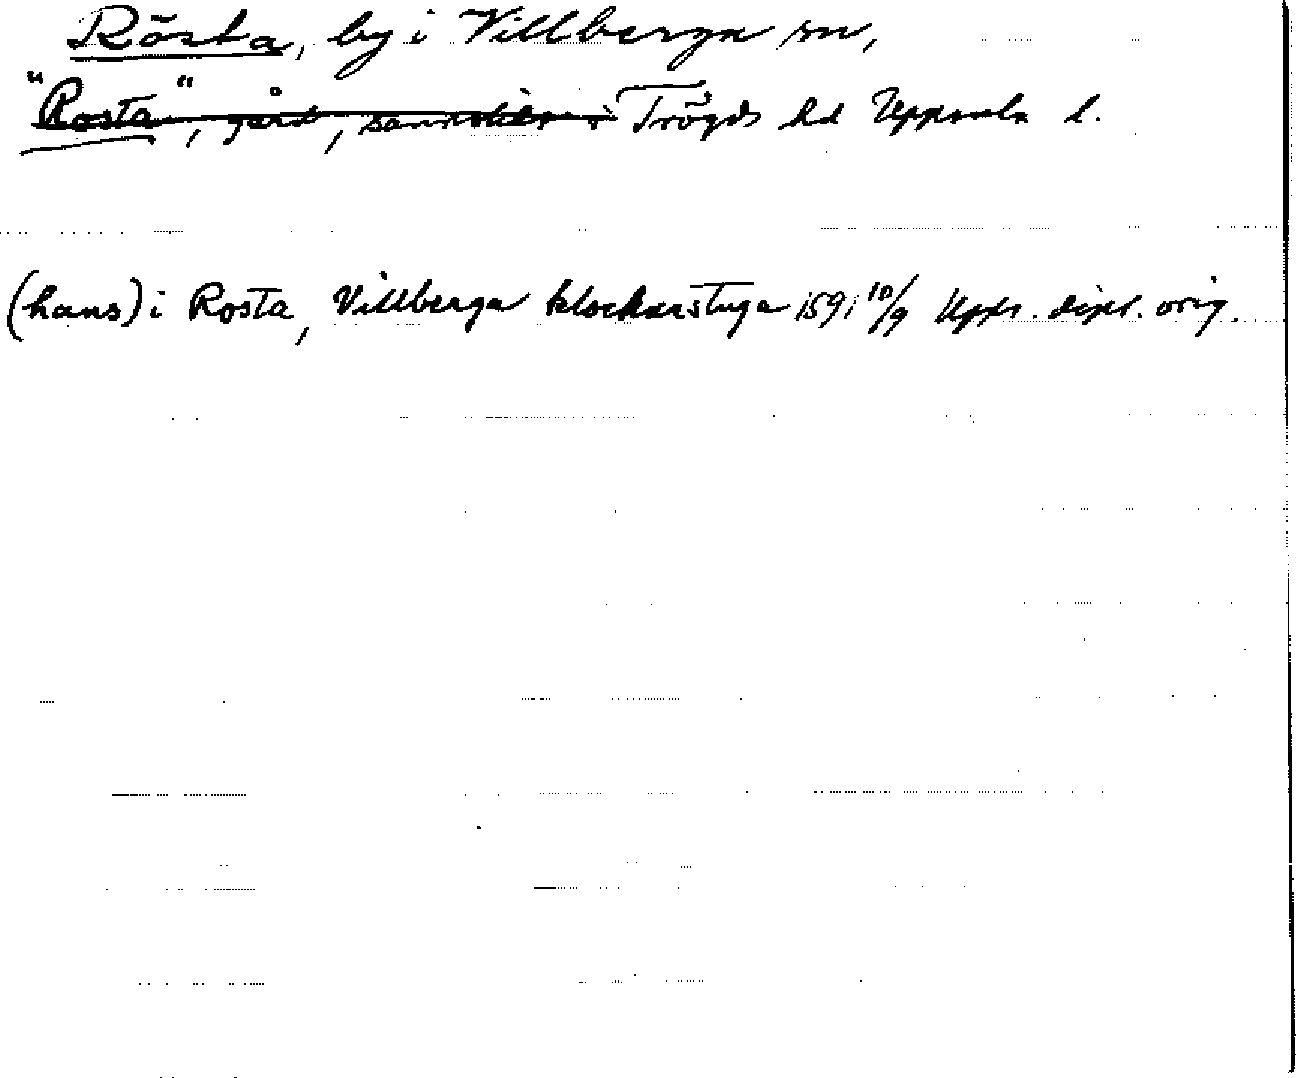 Rösta, by i Villberga sn,
"Rosta", gård, sannolikt i Trögds hd Uppsala l.
(hans) i Rosta, Villberga klockarstuga 1591 10/9 Upps. dipl. orig.